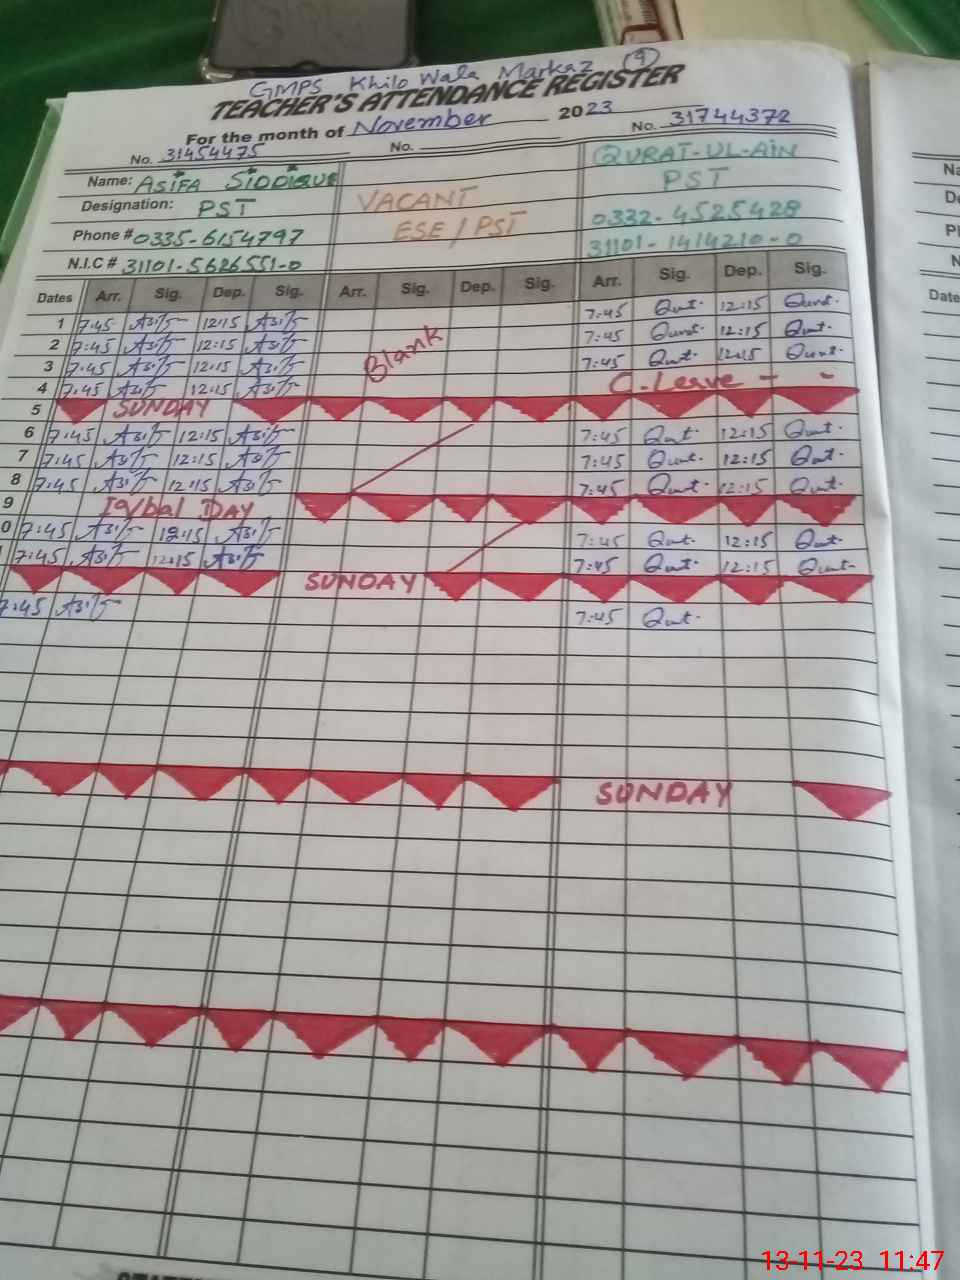 GMPS Khilo Wala Markaz (9)
TEACHER'S ATTENDANCE REGISTER
For the month of November 2023
No. 31454475 No. No. 31744372
Name: ASIFA SIDDIQUE VACANT QURAT-UL-AIN
Designation: PST ESE / PST PST
Phone # 0335-6154797 0332-4525428
N.I.C # 31101-5626551-0 31101-1414210-0
Dates Arr. Sig. Dep. Sig. Arr. Sig. Dep. Sig. Arr. Sig. Dep. Sig.
1 7:45 Asif 12:15 Asif 7:45 Qurat 12:15 Qurat
2 7:45 Asif 12:15 Asif Blank 7:45 Qurat 12:15 Qurat
3 7:45 Asif 12:15 Asif 7:45 Qurat 12:15 Qurat
4 7:45 Asif 12:15 Asif C. Leave - -
5 SUNDAY
6 7:45 Asif 12:15 Asif 7:45 Qurat 12:15 Qurat
7 7:45 Asif 12:15 Asif 7:45 Qurat 12:15 Qurat
8 7:45 Asif 12:15 Asif 7:45 Qurat 12:15 Qurat
9 Iqbal DAY
0 7:45 Asif 12:15 Asif 7:45 Qurat 12:15 Qurat
7:45 Asif 12:15 Asif 7:45 Qurat 12:15 Qurat
SUNDAY
7:45 Asif 7:45 Qurat
SUNDAY
13-11-23 11:47